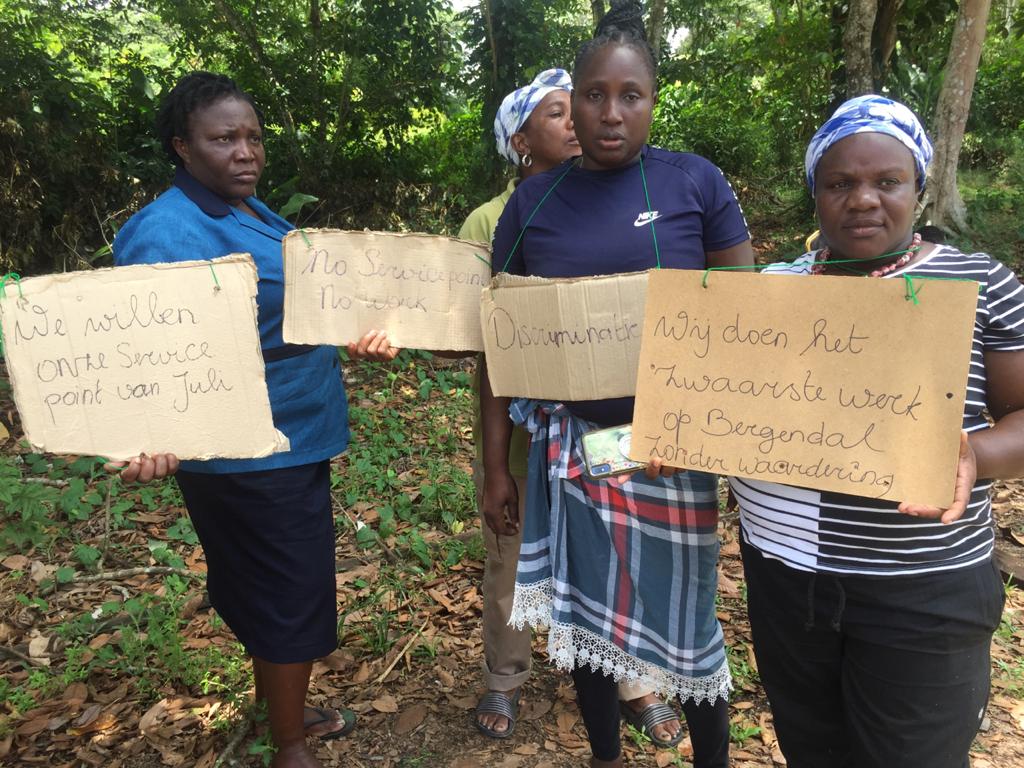 We willen
onze Service
point van Juli
No Servicepoint
No work
Discriminatie
NIKE
Wij doen het
zwaarste werk
op Bergendal
zonder waardering